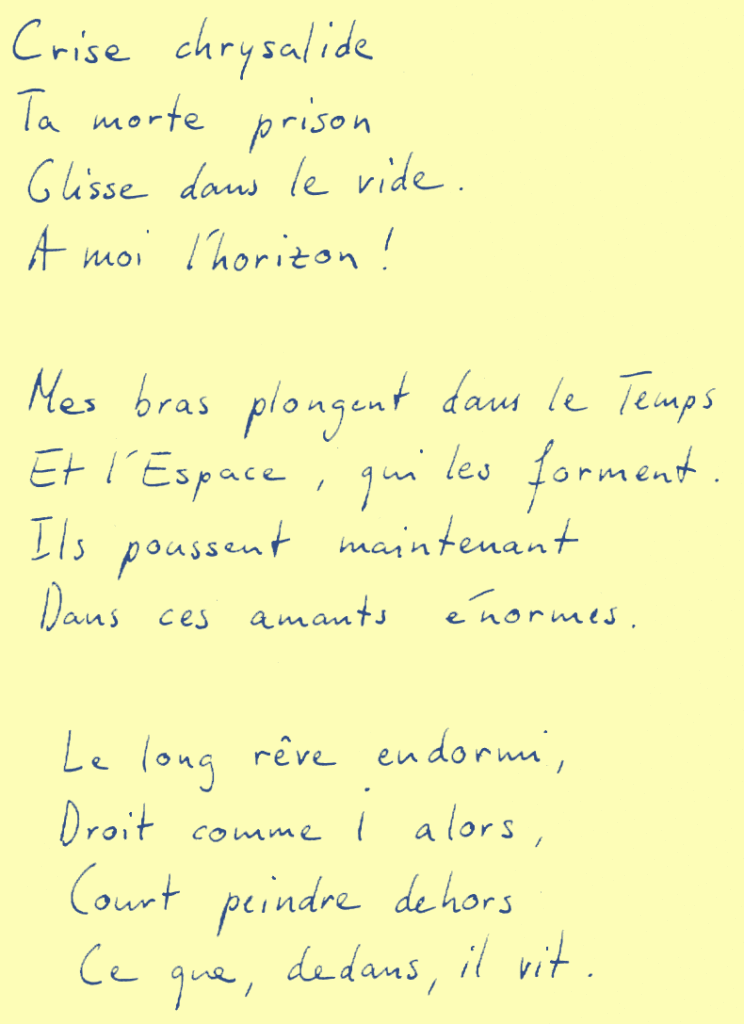 Crise chrysalide
Ta morte prison
Glisse dans le vide.
A moi l'horizon !
Mes bras plongent dans le Temps
Et l'Espace, qui les forment.
Ils poussent maintenant
Dans ces amants énormes.
Le long rêve endormi,
Droit comme i alors,
Court peindre dehors
Ce que, dedans, il vit.